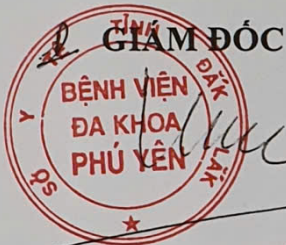 GIÁM ĐỐC
SỞ Y TẾ TỈNH ĐẮK LẮK
BỆNH VIỆN
ĐA KHOA
PHÚ YÊN